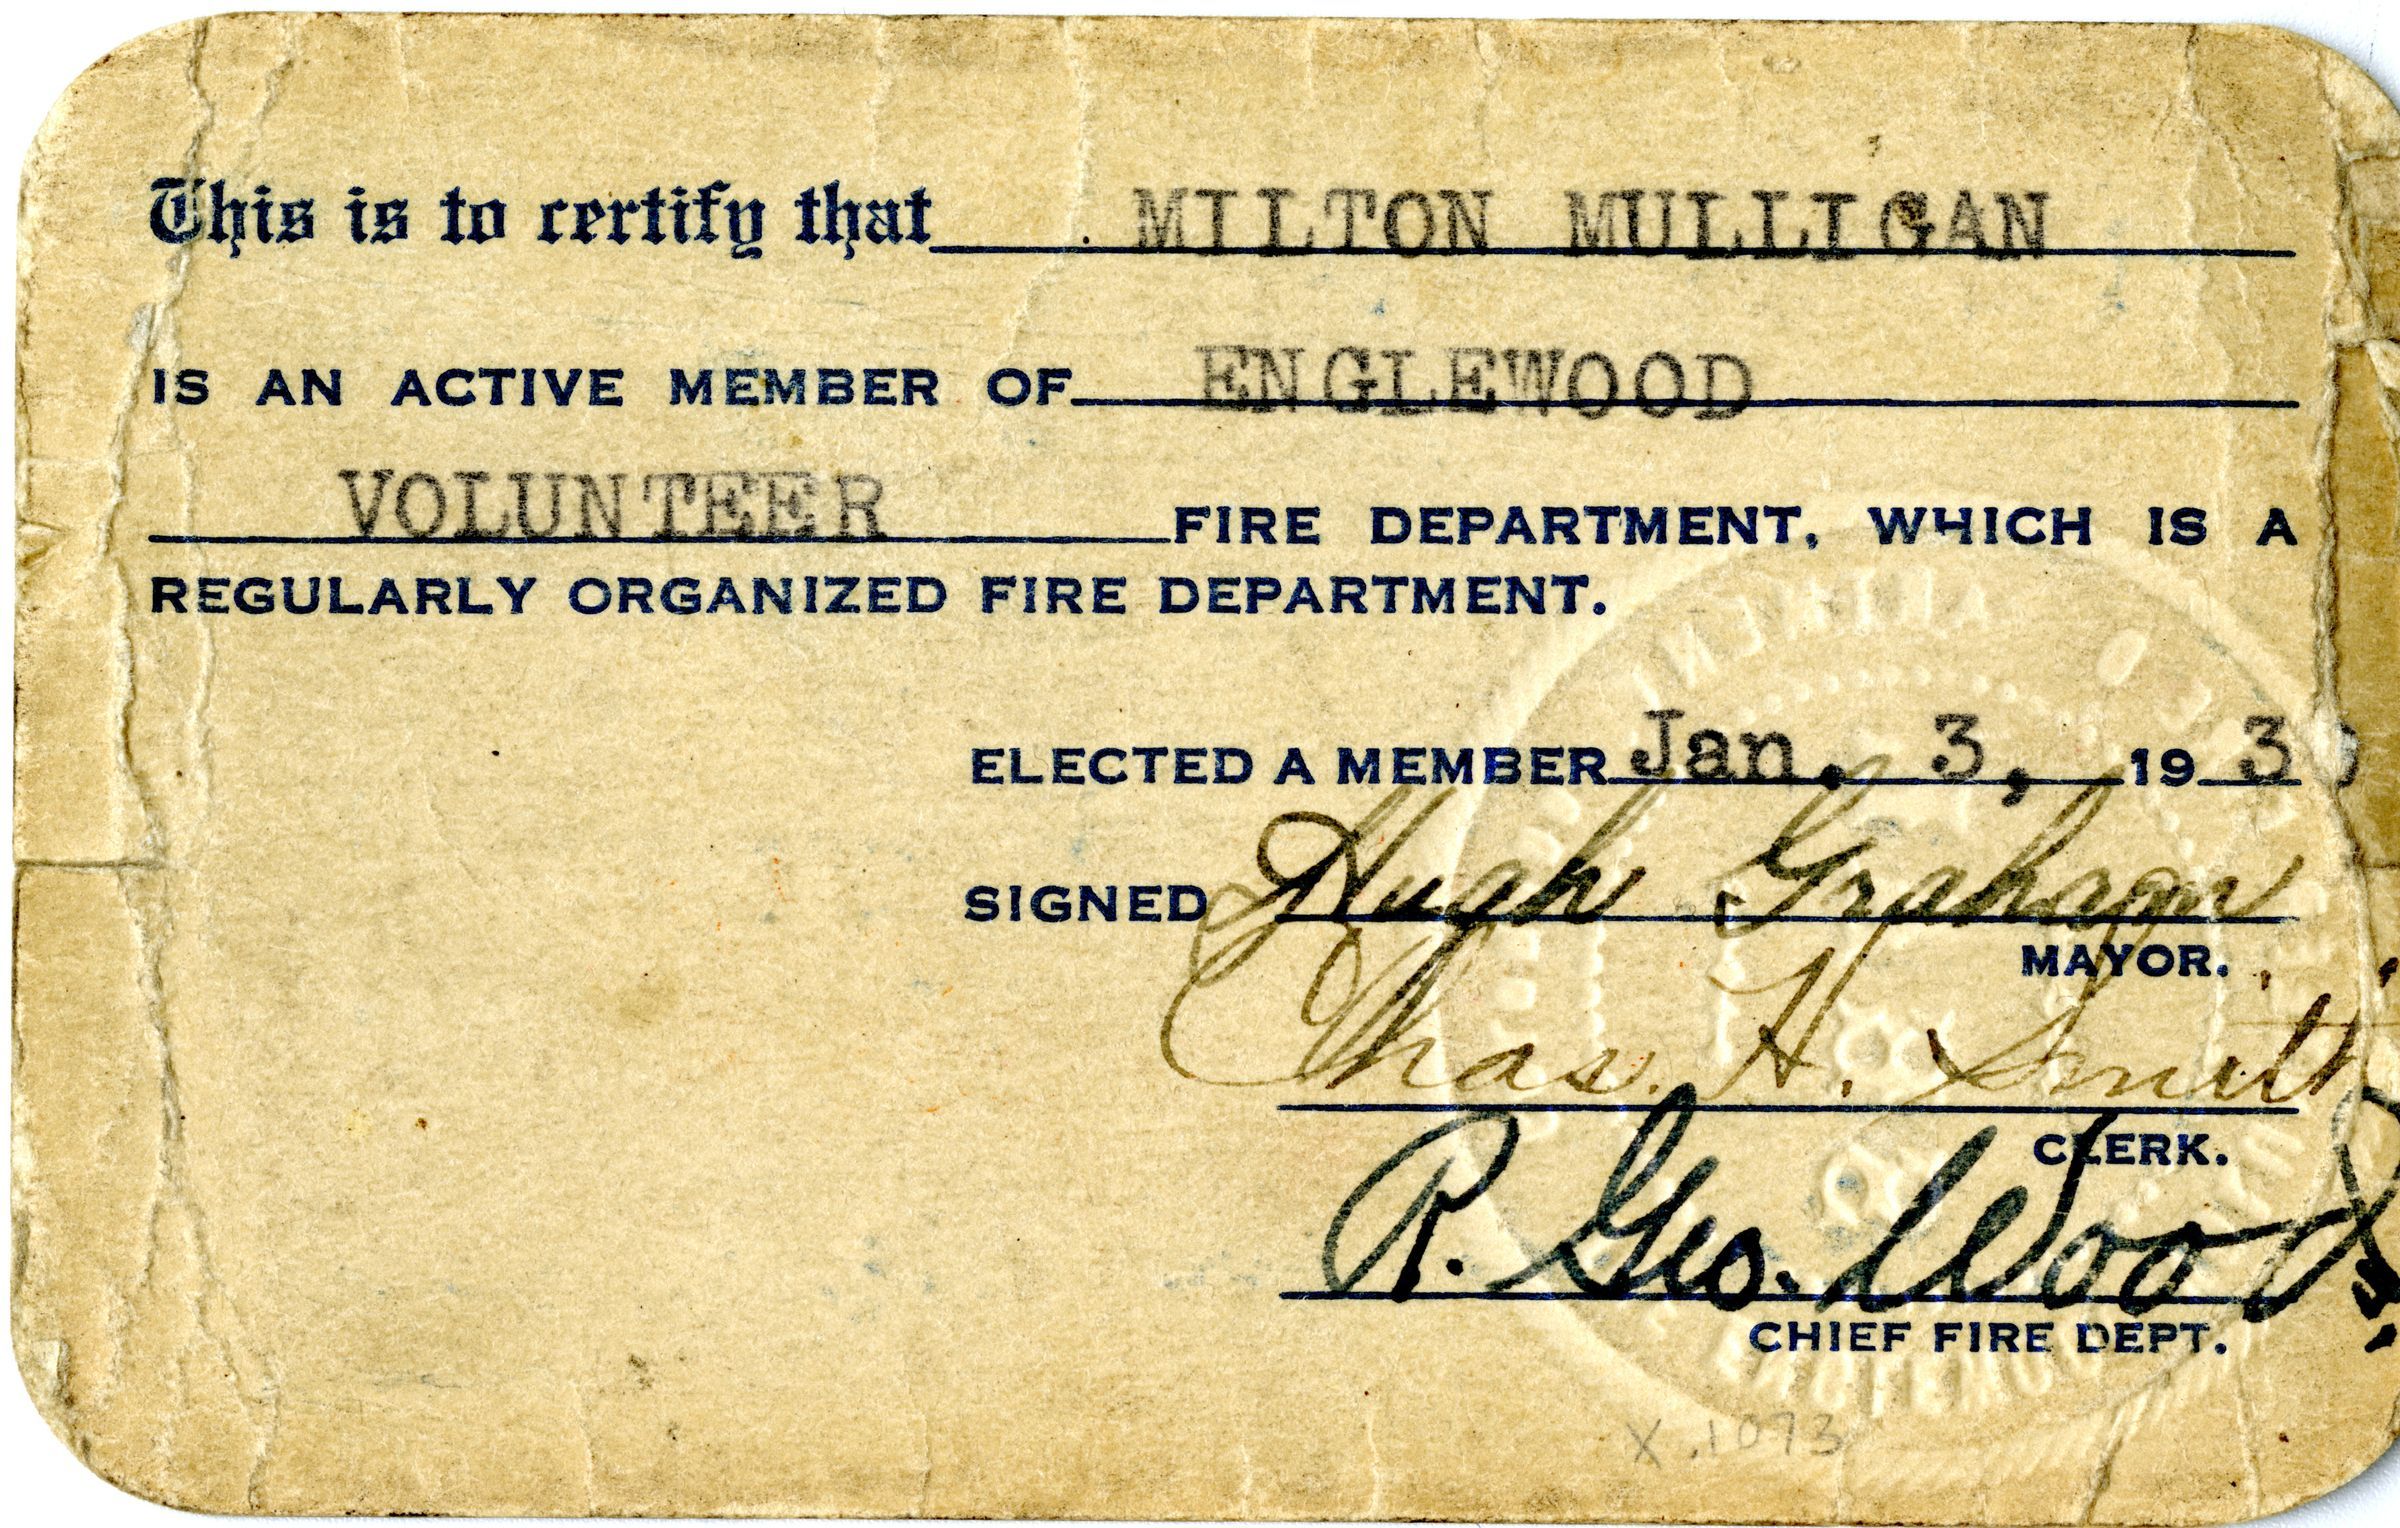 This is to certify that MILTON MULLIGAN
IS AN ACTIVE MEMBER OF ENGLEWOOD
VOLUNTEER FIRE DEPARTMENT, WHICH IS A
REGULARLY ORGANIZED FIRE DEPARTMENT.
ELECTED A MEMBER Jan. 3, 193
SIGNED Hugh Graham
MAYOR.
Chas. H. Smith
CLERK.
R. Geo. Woods
CHIEF FIRE DEPT.
X.1073